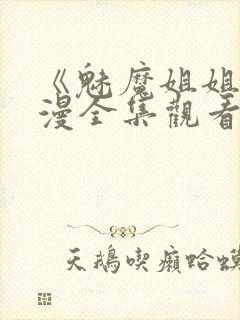 《魅魔姐姐
漫全集觀看
天鵝喫癩蛤蟆